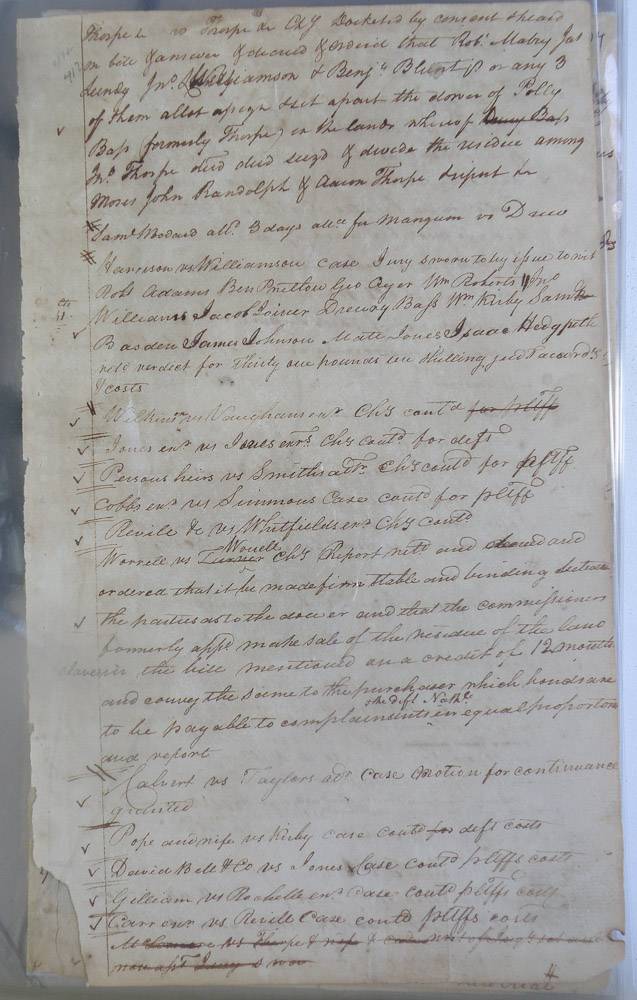 Thorpe &c vs Thorpe &c Chy Docketed by consent & heard
on bill & answer & decreed & ordered that Robt Mabry Jas
Lundy Jno Williamson & Benjn Blunt jr or any 3
of them allot assign & set apart the dower of Polly
Bass formerly Thorpe, in the lands whereof
Jno Thorpe died seizd & divide the residue among
Moses John Randolph & Aaron Thorpe & report &c
Saml Wodard all. 3 days attce for Mangum vs Drew
Harrison vs Williamson Case Jury sworn to try issue to wit
Robt Adams Ben Pretlow Geo Ayer Wm Roberts Jno
Williams Jacob Joiner Drewry Bass Wm Kirby Saml
Basden James Johnson Matt Jones Isaac Hedgpeth
retd verdict for Thirty one pounds six shilling judt accordg
& costs
Wilkins vs Vaughans exr Chy contd for pltff
Jones exr vs Jones exrs Chy contd for deft
Persons heirs vs Smiths adr Chy contd for pltff
Cobbs exr vs Simmons Case contd for pltff
Revile &c vs Whitfields exr Chy contd
Worrell
Worrell vs Turner Chy Report retd and and
ordered that it be made firm stable and binding between
the parties as to the dower and that the commissioners
formerly appd make sale of the residue of the land
slaves in the bill mentioned on a credit of 12 months
and convey the same to the purchaser which bonds are
& the deft Nathl
to be payable to complainants in equal proportions
and report
Calvert vs Taylors adr Case Motion for continuance
granted
Pope and wife vs Kirby case contd for defts costs
David Bell & Co vs Jones Case contd pltffs costs
Gilliam vs Rochelle exr Case contd pltffs costs
Carr exr vs Revill Case contd pltffs costs
vs Thorpe & wife & writ of Inqy set aside
now apt Jury swon